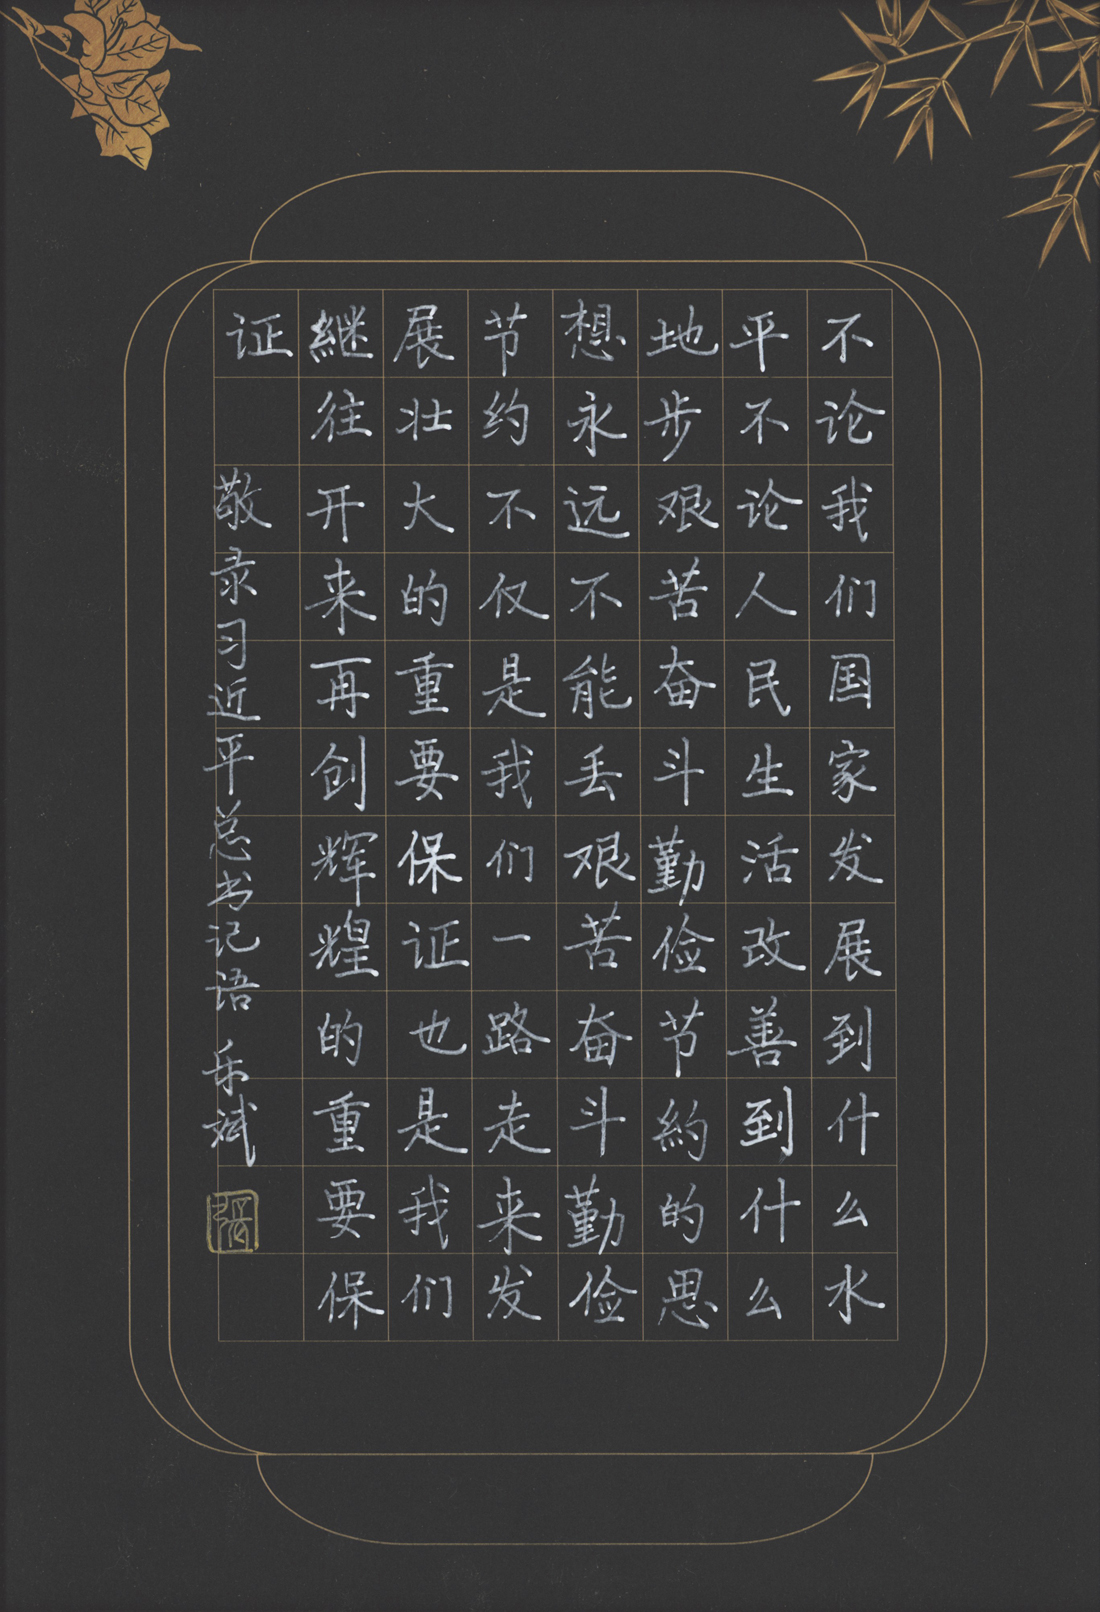 不论我们国家发展到什么水
平不论人民生活改善到什么
地步艰苦奋斗勤俭节約的思
想永远不能丢艰苦奋斗勤俭
节约不仅是我们一路走来发
展壮大的重要保证也是我们
継往开来再创辉煌的重要保
证
敬录习近平总书记语 乐斌